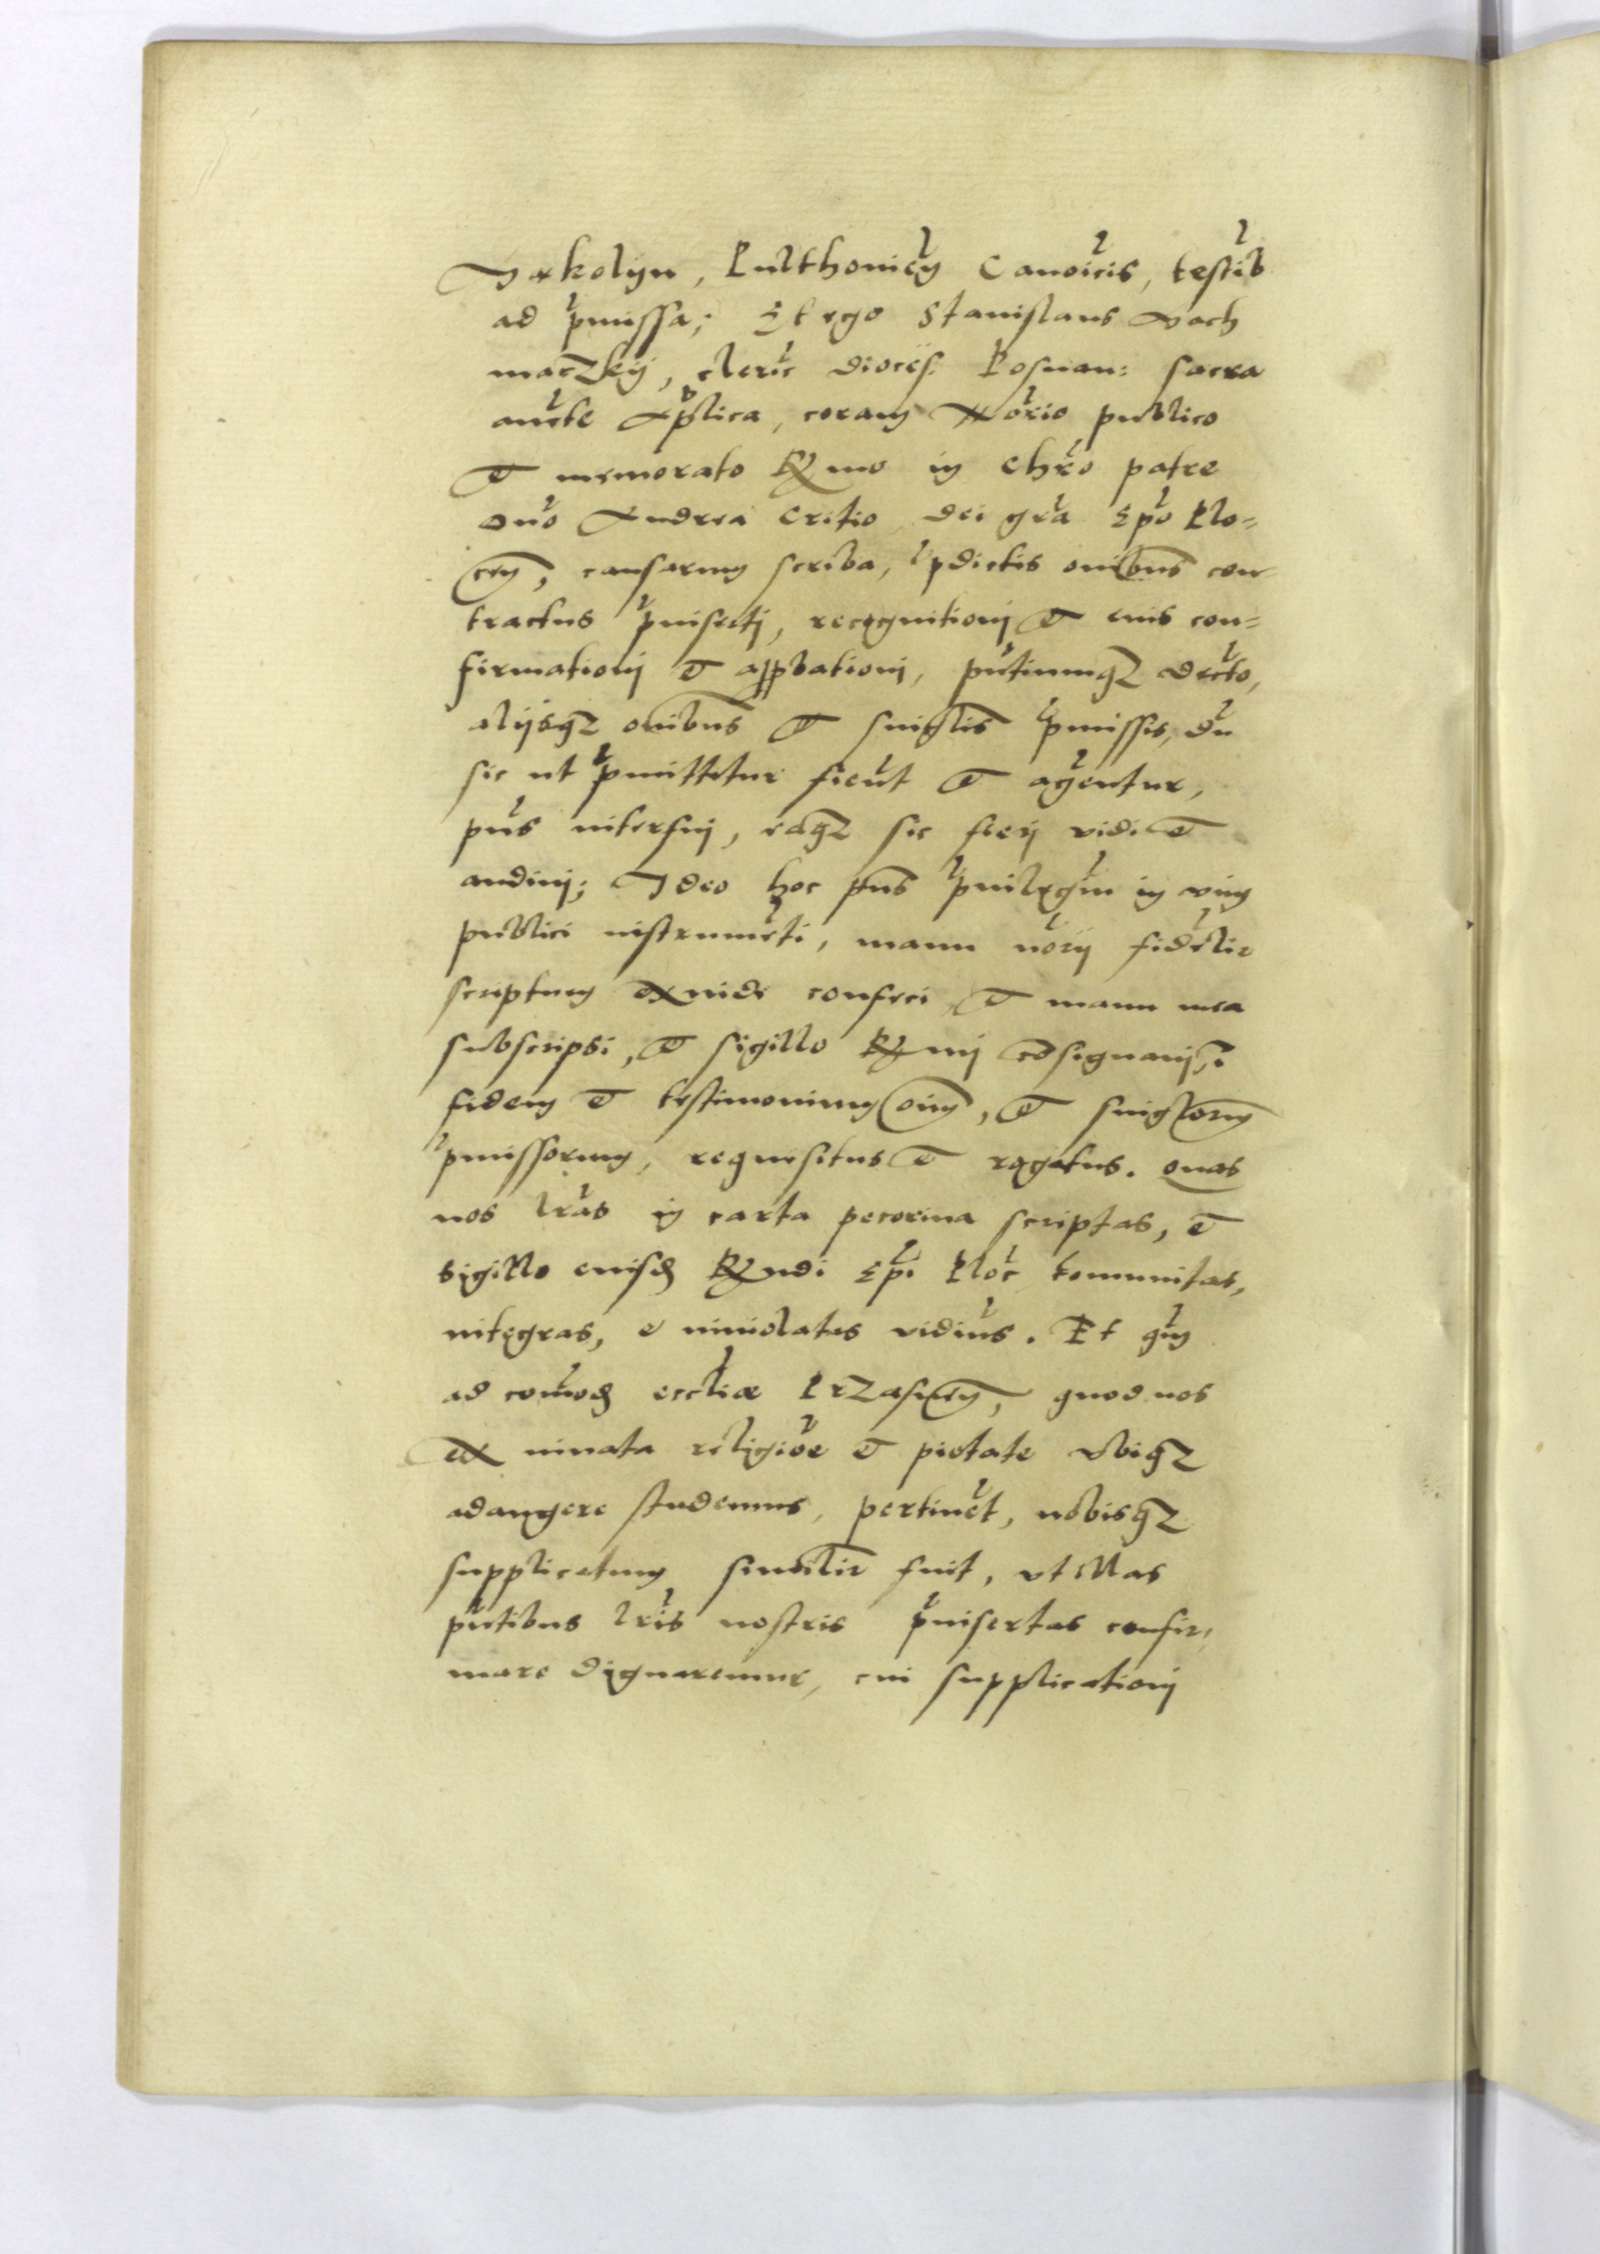 Jakolyn, Pulthonien Canoicis, testib
ad pmissa; Et ego Stanislaus Voch
maczkij, cleric dioces: Posnan: sacra
aucte Aplica, coram Norio publico
et memorato Rmo in Chro patre
Dno Andrea Critio Dei gra Epo Plo=
cen, causarum scriba, pdictis omibus con-
tractus pinserti, recognitionj et eius con=
firmationj et approbationj, pntiumqz decto,
alijsqz omibus et singlis pmissis, du
sic ut pmittetur fieut et agentur,
pns interfuj, eaqz sic fierj vidi et
audiuj; Ideo hoc pns priuilegiu in vim
publici instrumeti, manu norij fidelit
scriptum exinde confeci et manu mea
subscripsi, et sigillo Rmj cosignauj, i
fidem et testimonium oim, et singlorum
pmissorum, requisitus et rogatus. Quas
nos lras in carta pecorina scriptas, et
sigillo eiusd Rndi Epi Ploc comunitas,
integras, e inuiolatas vidius. Et qm
ad comod eccliæ Przasnen, quod nos
ex innata religioe et pietate vbiqz
adaugere studemus, pertinet, nobisqz
supplicatum similit fuit, vt illas
pntibus lris nostris pinsertas confir,
mare dignaremur, cui supplicationj